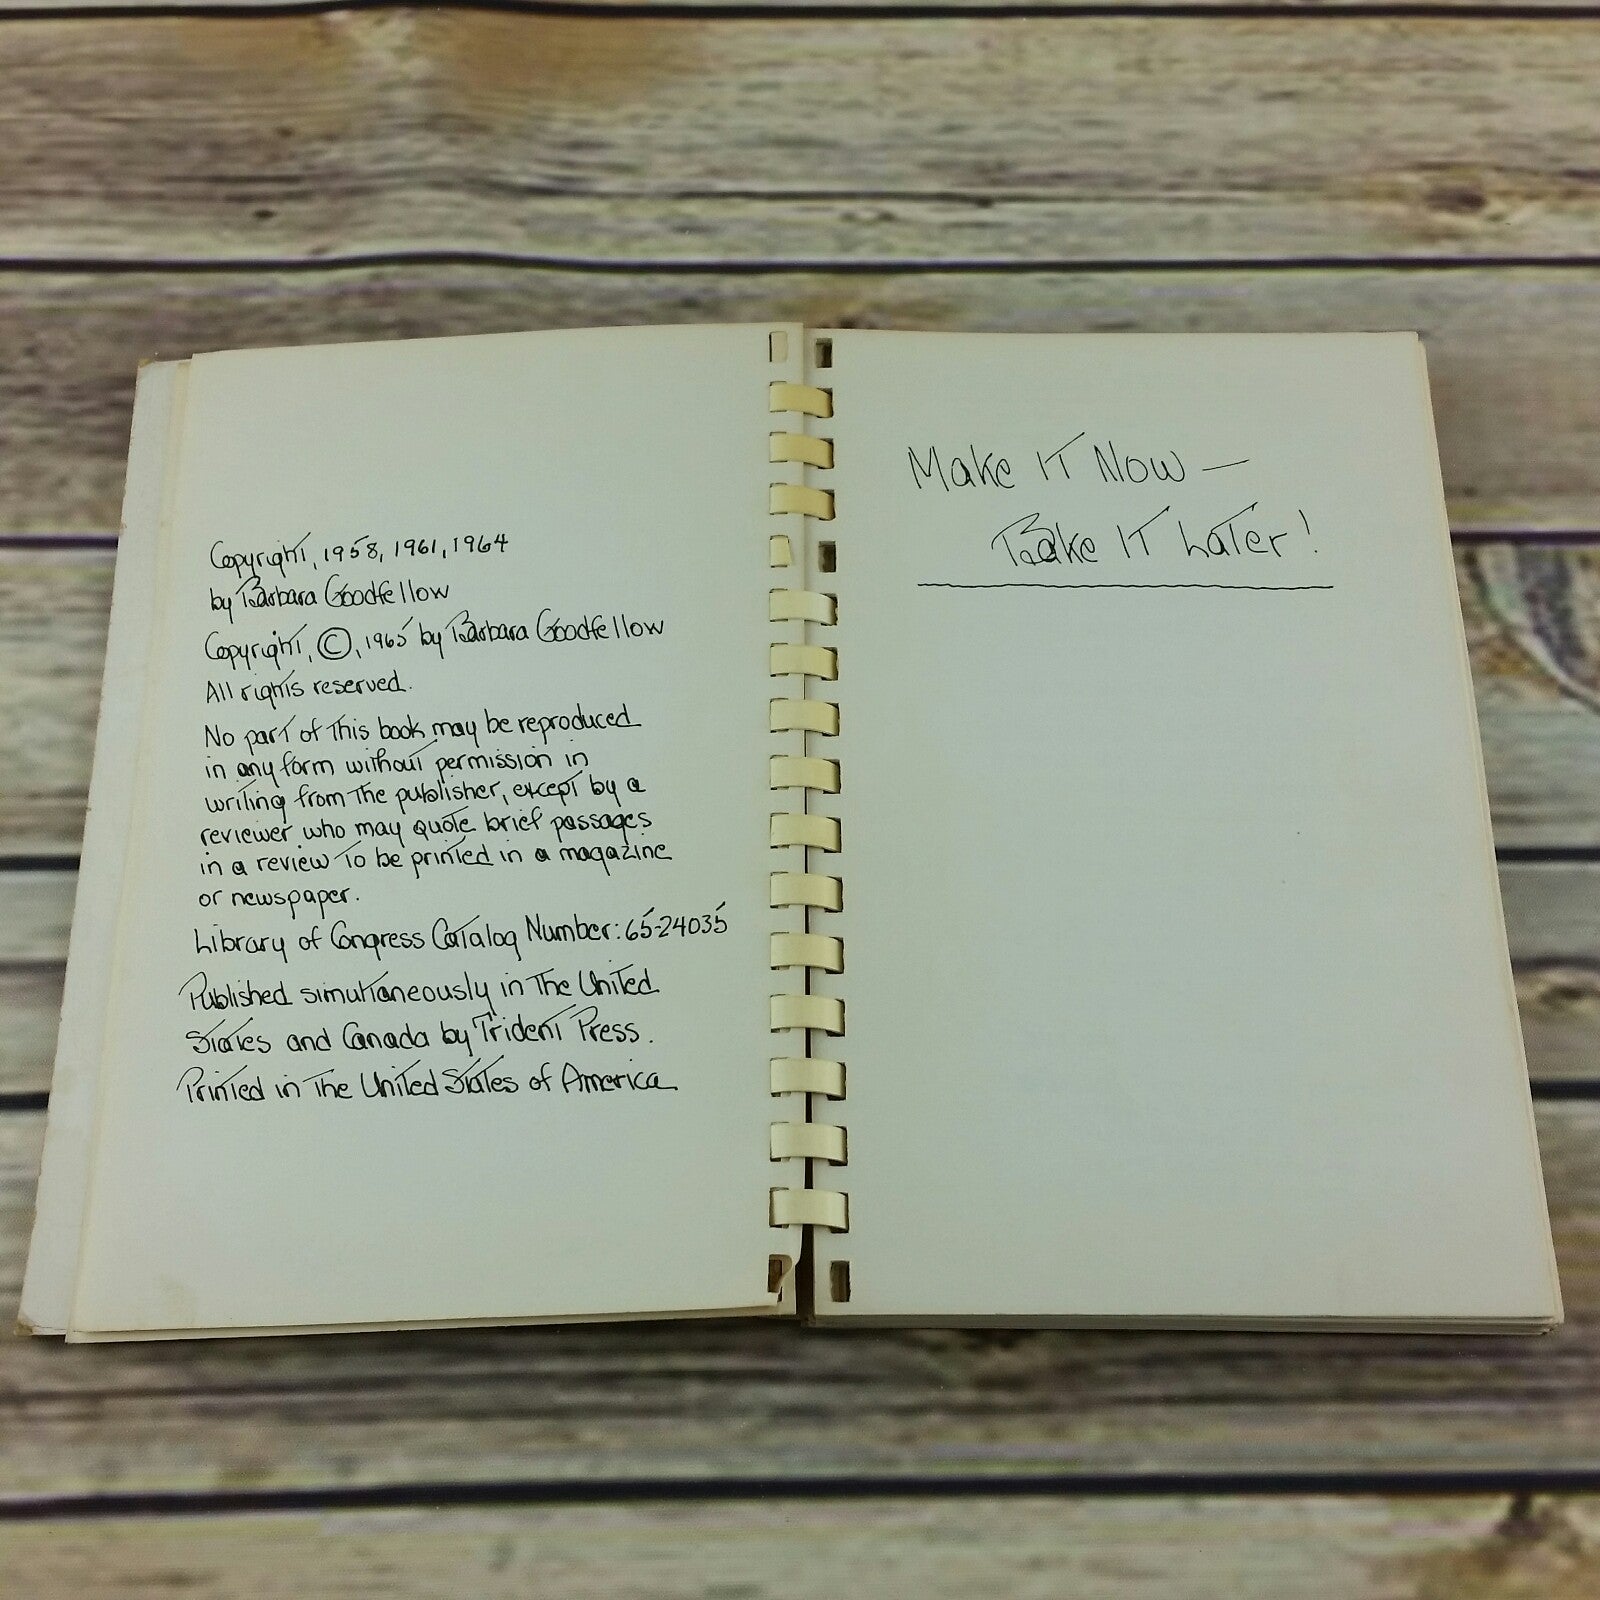 Copyright, 1958, 1961, 1964
by Barbara Goodfellow
Copyright, ©, 1965 by Barbara Goodfellow
All rights reserved.
No part of this book may be reproduced
in any form without permission in
writing from the publisher, except by a
reviewer who may quote brief passages
in a review to be printed in a magazine
or newspaper.
Library of Congress Catalog Number: 65-24035
Published simultaneously in the United
States and Canada by Trident Press.
Printed in the United States of America
Make It Now —
Bake It Later!